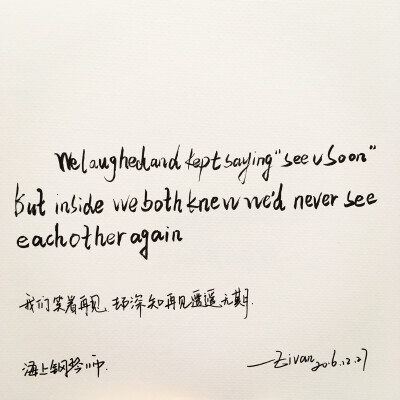 We laughed and kept saying "see u soon"
But inside we both knew we'd never see
each other again
我们笑着再见,却深知再见遥遥无期.
海上钢琴师.
—Zivan 2016.12.27